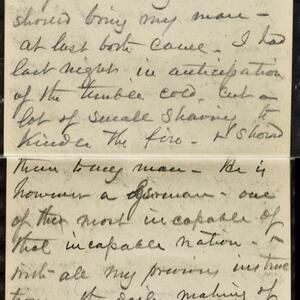 should bring my man -
at last both came. I had
last night in anticipation
of the terrible cold, cut a
lot of small shavings to
kinder the fire - & showed
them to my man - He is
however a German - one
of the most incapable of
that incapable nation -
with all my previous instruc
tions the daily making of